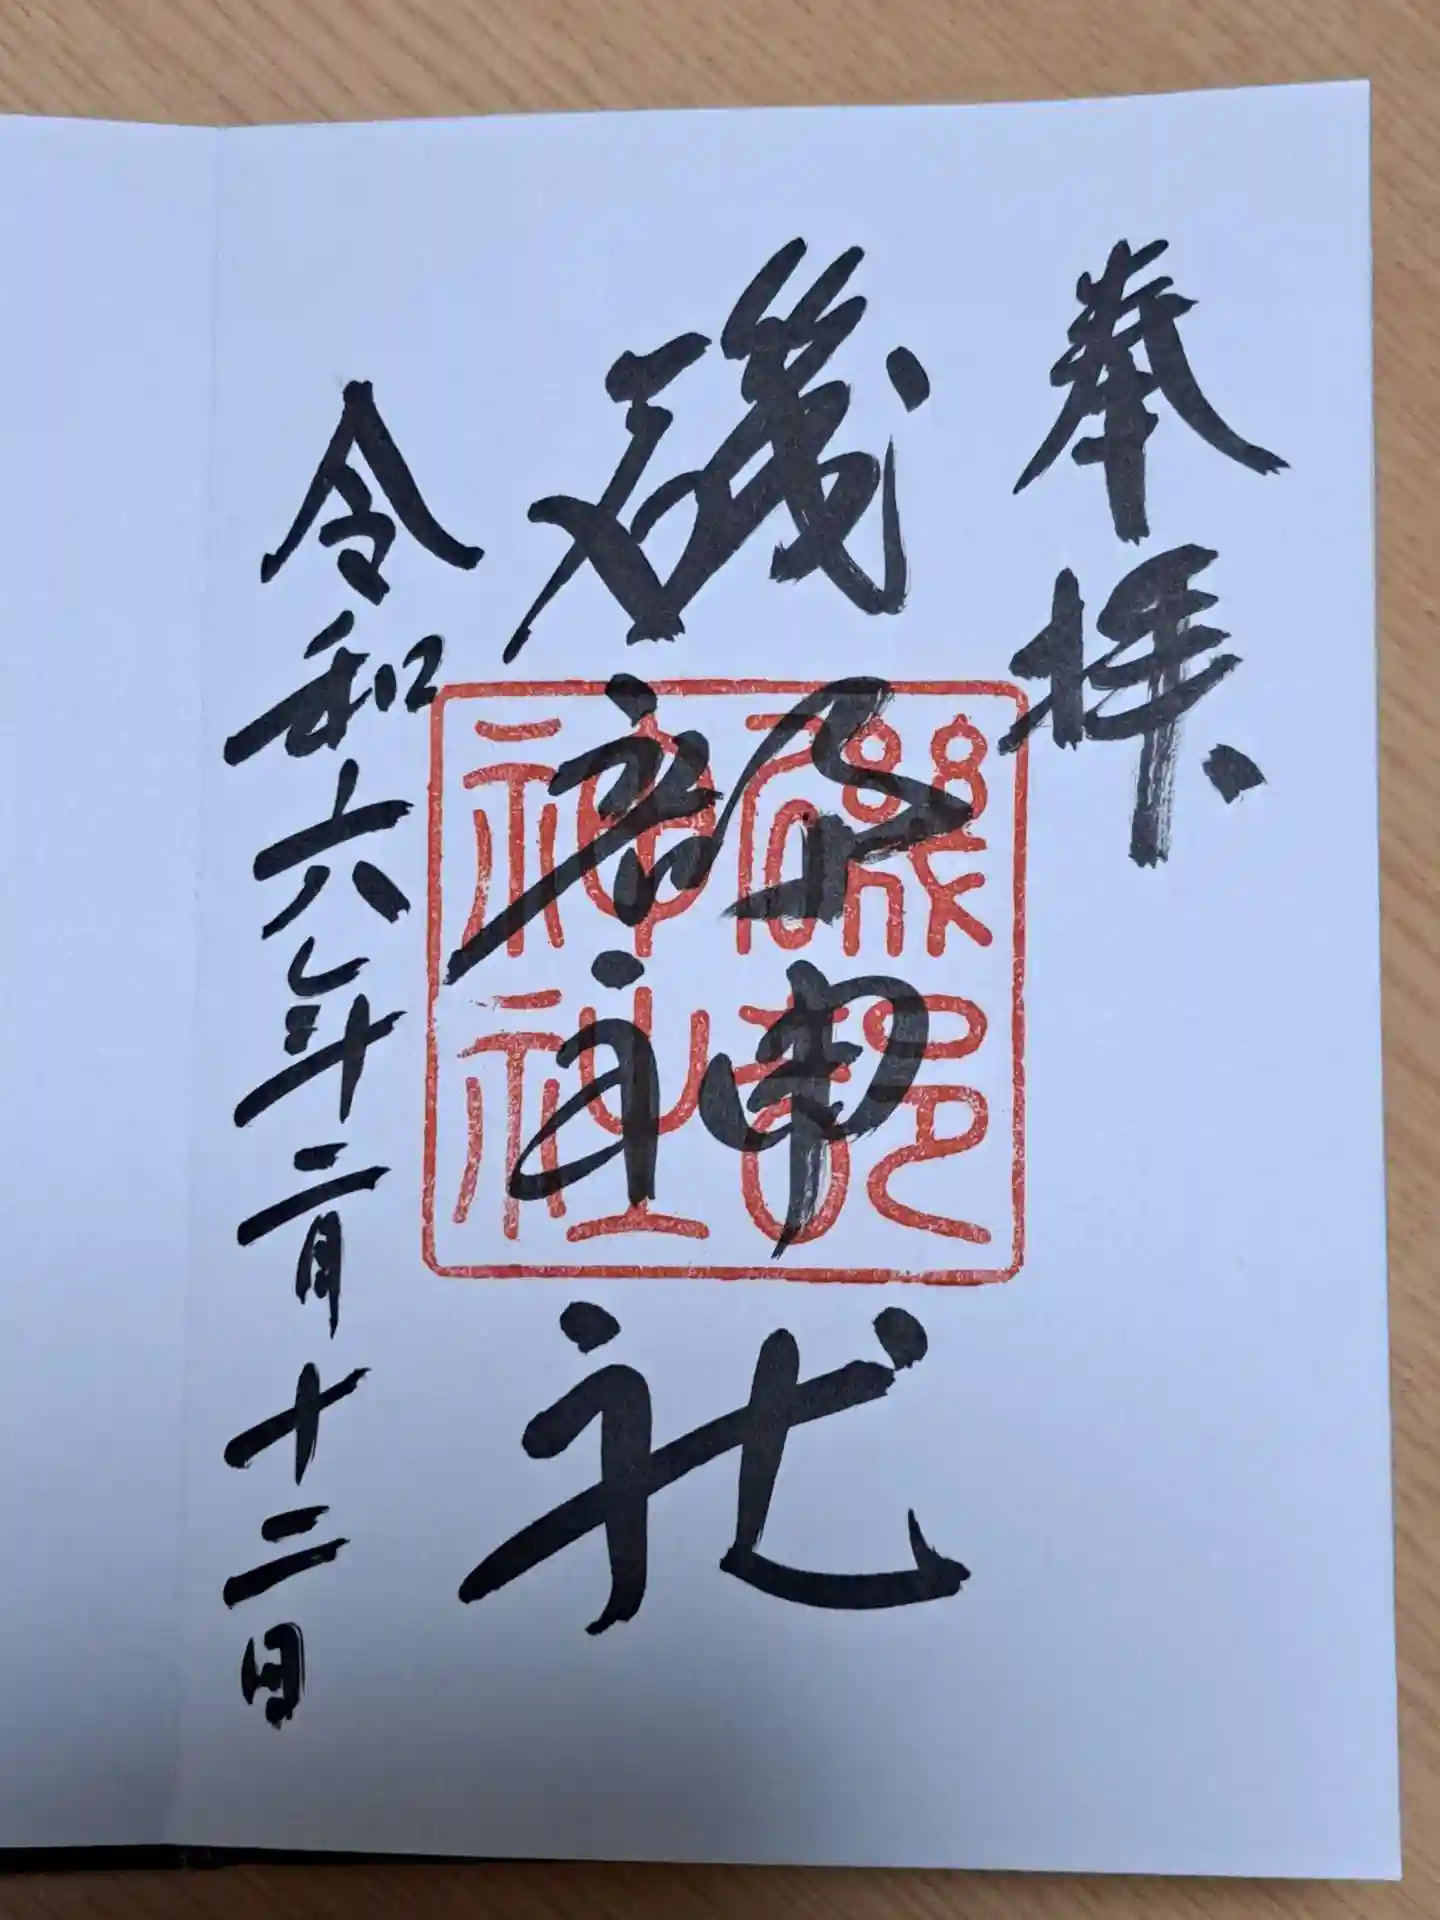 奉拝
磯部神社
令和六年二月十二日
磯部
神社